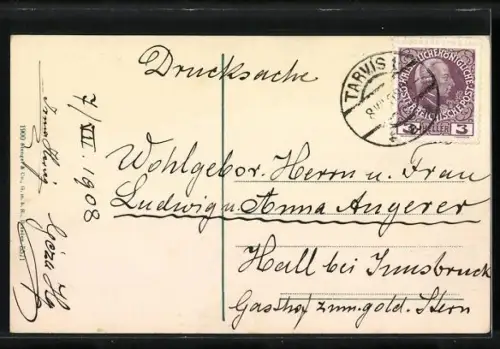 Drucksache
TARVIS 1
KAISERLICHEKÖNIGLICHE
ÖSTERREICHISCHEPOST
3 HELLER 3
Wohlgebor. Herrn u. Frau
Ludwig u. Anna Angerer
Hall bei Innsbruck
Gasthof zum gold. Stern
7/VII. 1908
Géza
1900